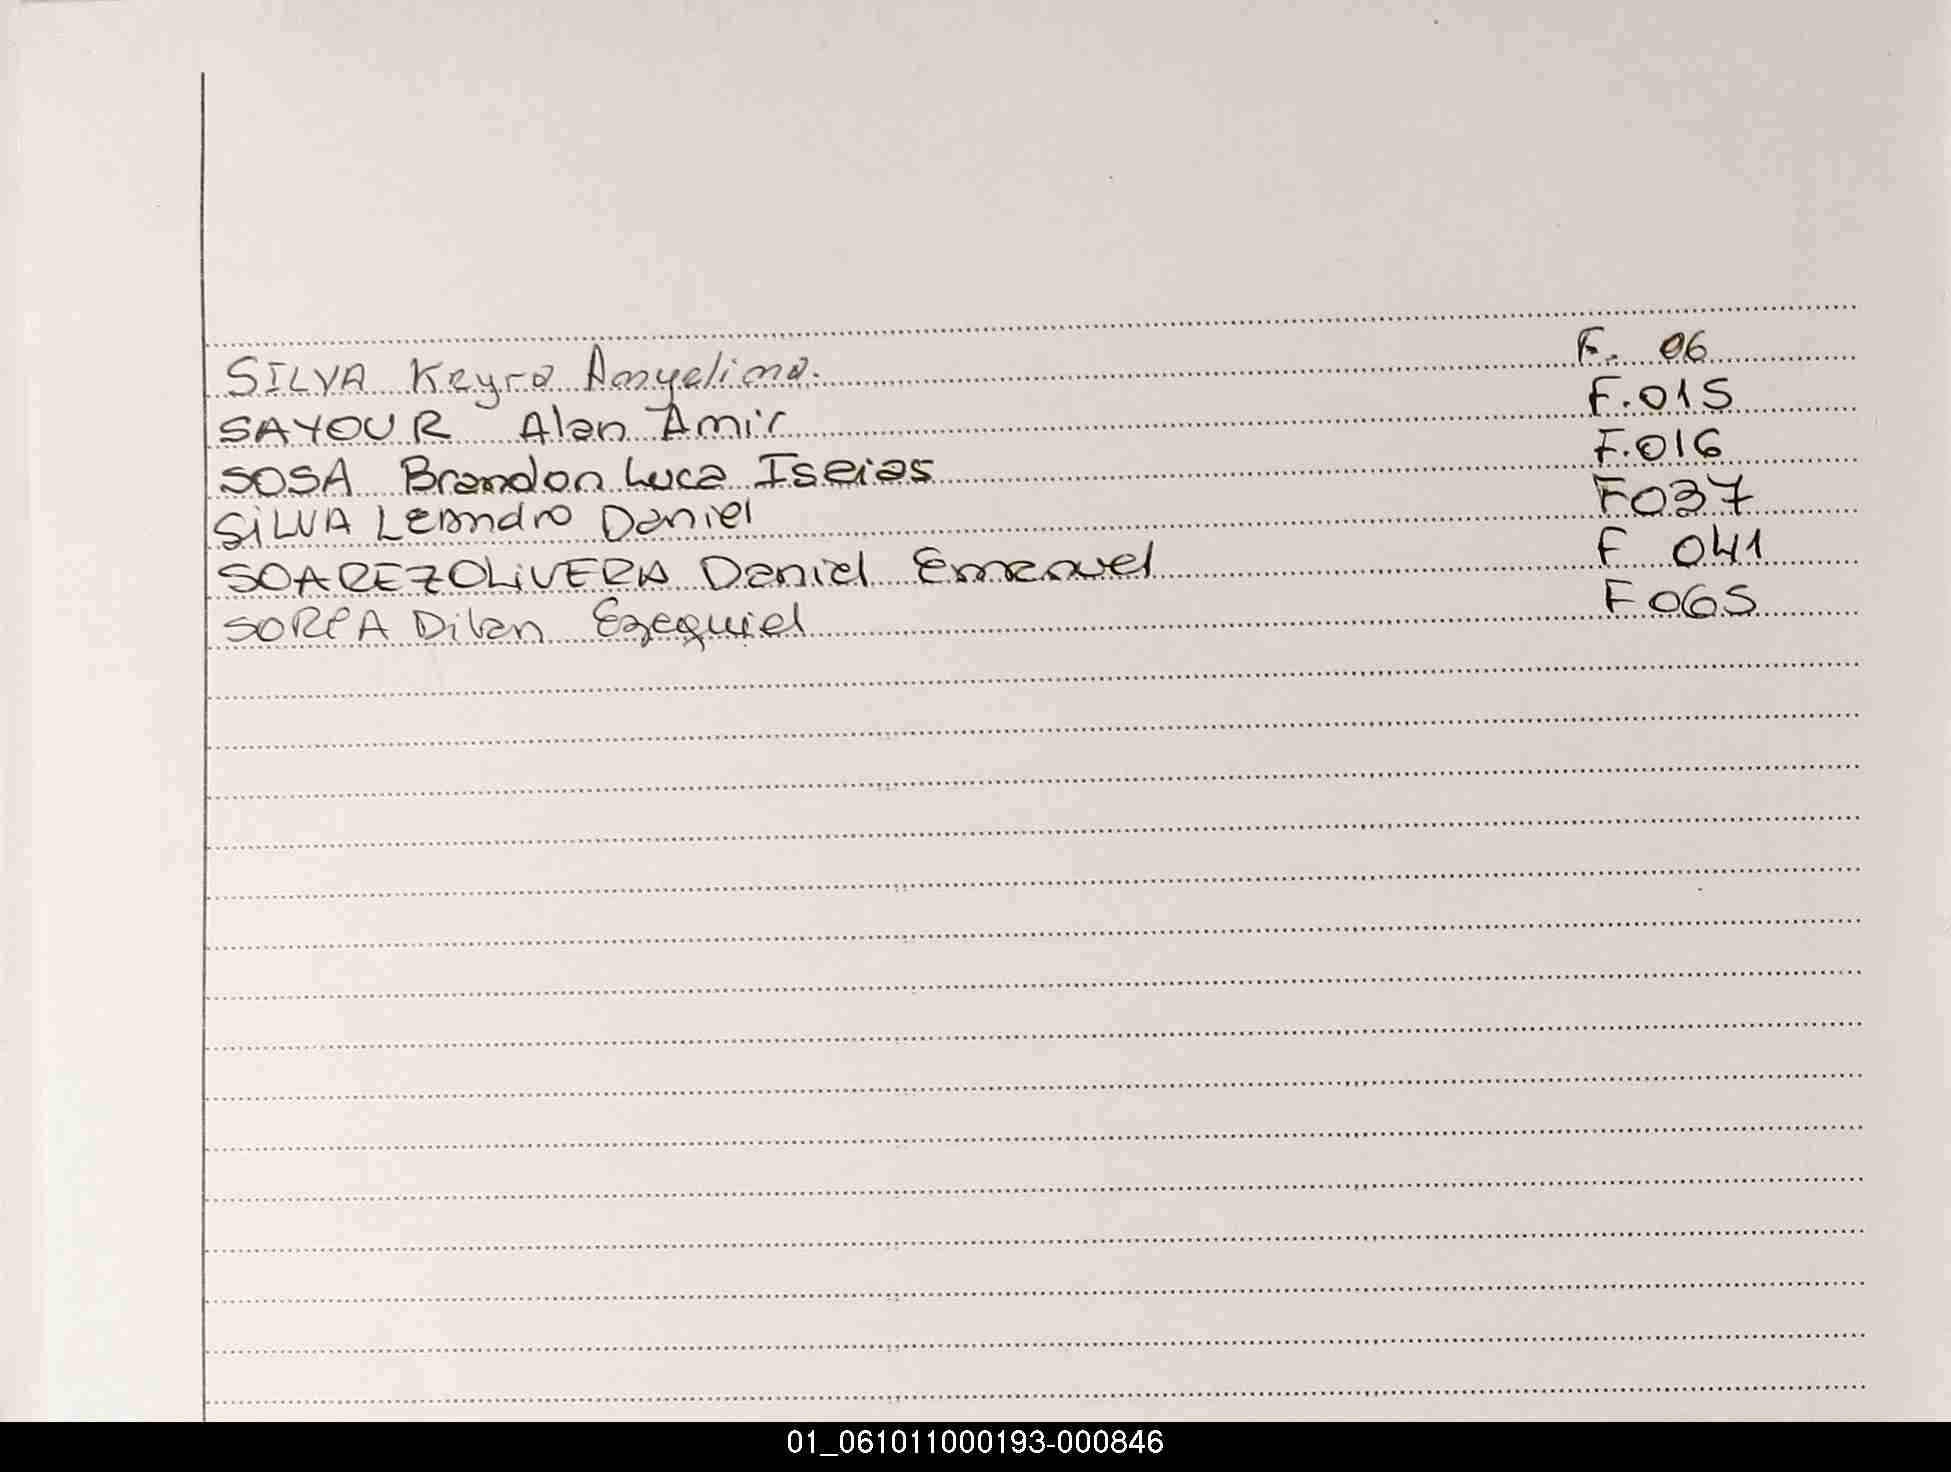 SILVA Keyra Anyelina. F. 06
SAYOUR Alan Amir F.015
SOSA Brandon Luca Iseias F.016
SiLVA Leandro Daniel F037
SOAREZ OLiVERA Daniel Emanuel F 041
Dilan Ezequiel F 065
01_061011000193-000846